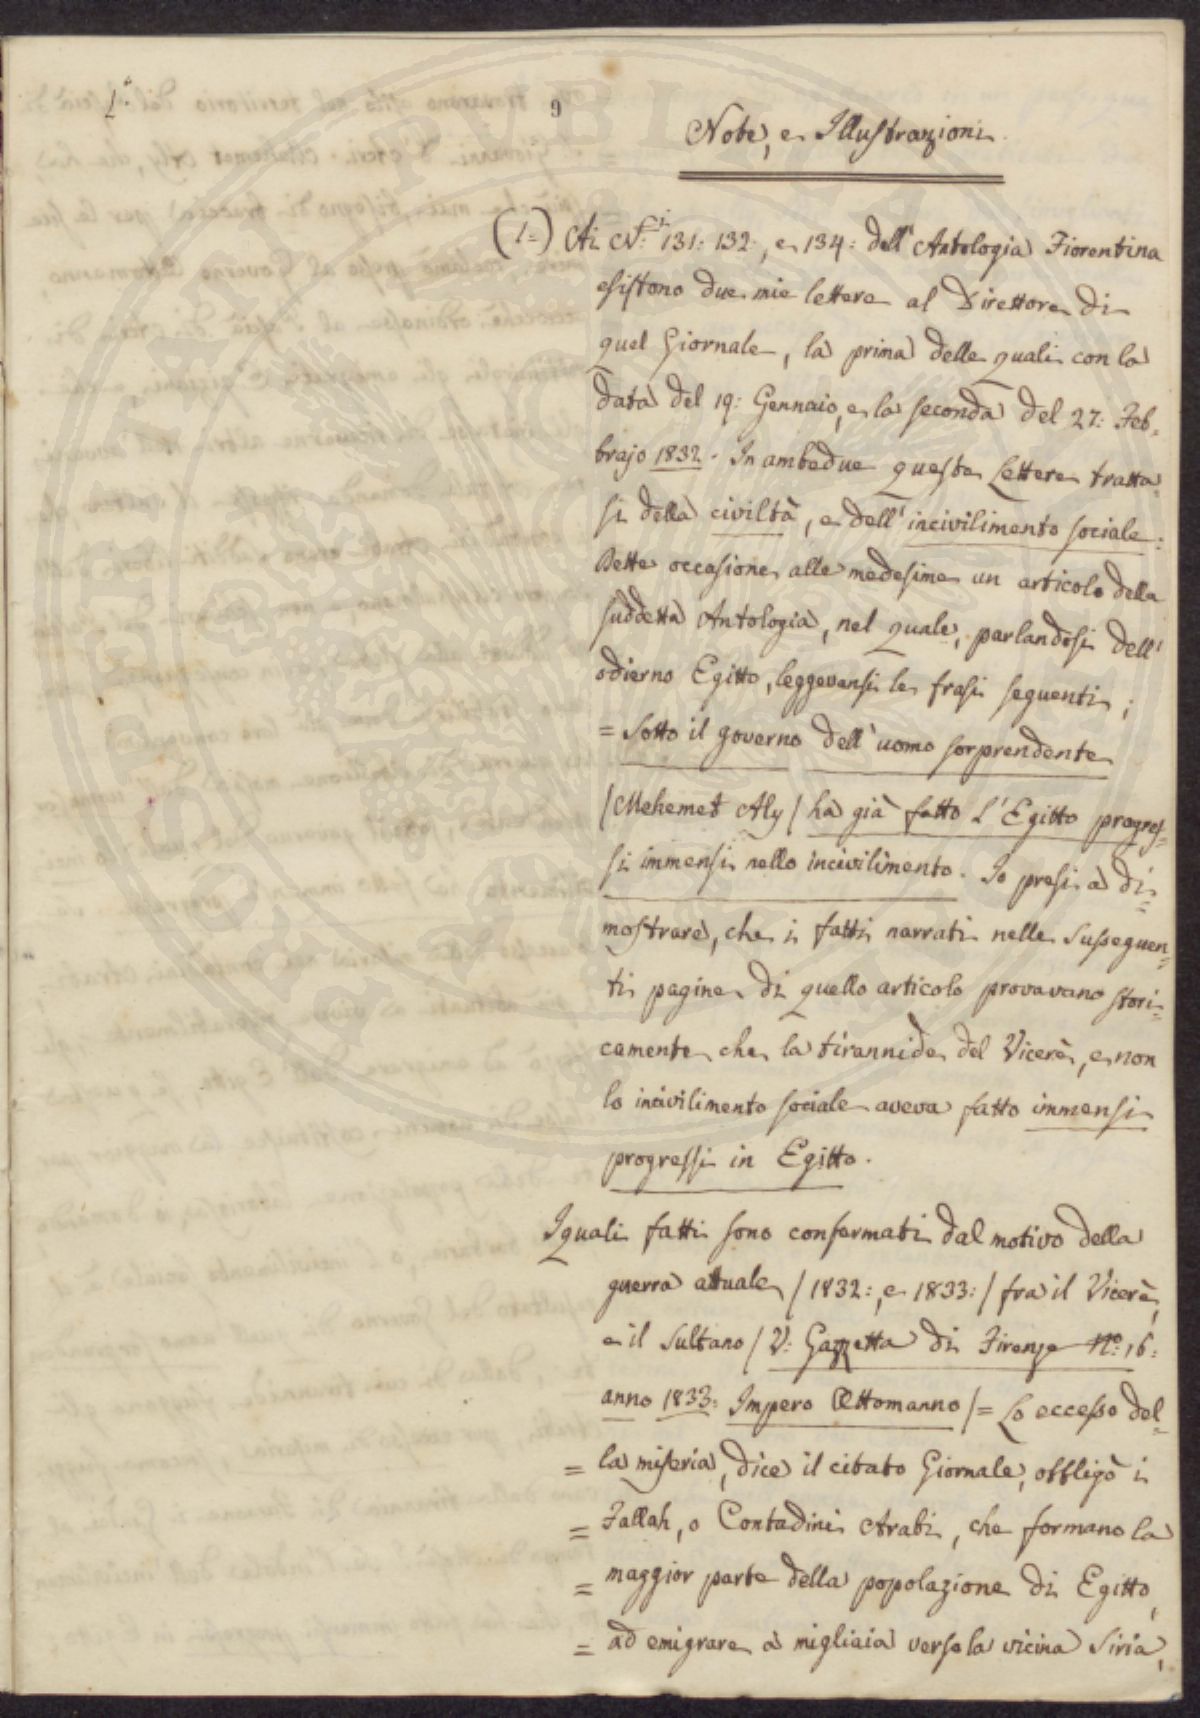 9
Note, e Illustrazioni.
(1=) Ai N.i 131: 132:, e 134: dell'Antologia Fiorentina
esistono due mie lettere al Direttore di
quel Giornale, la prima delle quali con la
data del 19: Gennaio, e la seconda del 27: Feb=
brajo 1832. In ambedue queste Lettere tratta
si della civiltà, e dell'incivilimento sociale:
Dette occasione alle medesime un articolo della
suddetta Antologia, nel quale, parlandosi dell'
odierno Egitto, leggevansi le frasi seguenti;
= Sotto il governo dell'uomo sorprendente
/Mehemet Aly/ ha già fatto l'Egitto progres=
si immensi nello incivilimento. Io presi a di=
mostrare, che i fatti narrati nelle susseguen=
ti pagine di quello articolo provavano stori=
camente che la tirannide del Vicerè, e non
lo incivilimento sociale aveva fatto immensi
progressi in Egitto.
I quali fatti sono confermati dal motivo della
guerra attuale /1832:, e 1833:/ fra il Vicerè,
e il Sultano /V: Gazzetta di Firenze N.o 16:
anno 1833: Impero Ottomanno/= Lo eccesso del=
= la miseria, dice il citato Giornale, obbligò i
= Fallah, o Contadini Arabi, che formano la
= maggior parte della popolazione di Egitto,
= ad emigrare a migliaia verso la vicina Siria,